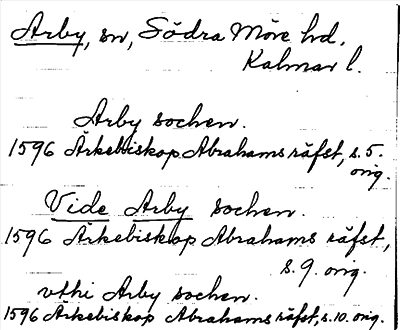 Arby, sn, Södra Möre hd.
Kalmar l.
Arby sochen.
1596 Ärkebiskop Abrahams räfst, s. 5.
orig.
Vide Arby sochen.
1596 Ärkebiskop Abrahams räfst,
s. 9. orig.
vthi Arby sochen.
1596 Ärkebiskop Abrahams räfst, s. 10. orig.